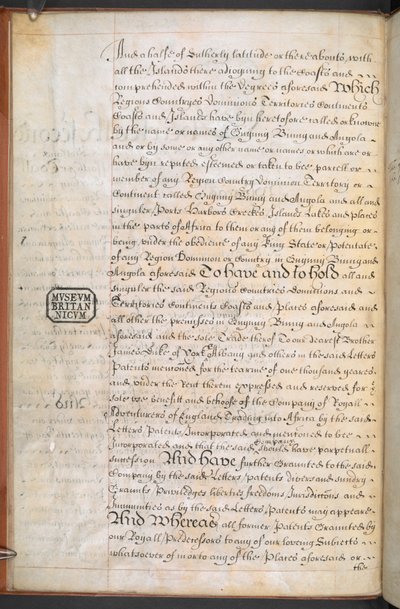 And a halfe of Sutherly latitude or thereabouts with
all the Islands there adjoyning to the Coasts and
comprehended within the Degrees aforesaid Which
Regions Countryes Dominions Territories Continents
Coasts and Islands have byn heretofore called or knowne
by the name or names of Guyny Binny and Angola
and or by some or any other name or names or which are or
have byn reputed esteemed or taken to bee parcell or
member of any Region Country Dominion Territory or
Continent called Guyny Binny and Angola and all and
singuler Ports Harbors Creekes Islands Lakes and places
in the parts of Africa to them or any of them belonging or
being under the obedience of any King State or Potentate
of any Region Dominion or Country in Guyny Binny and
Angola aforesaid To have and to hold all and
singuler the said Regions Countries Dominions and
Territories Continents Coasts and places aforesaid and
all other the premisses in Guyny Binny and Angola
aforesaid and the sole Trade thereof To our dearest Brother
James Duke of York Albany and others in the said Letters
Patents mencioned for the tearme of one thousand yeares
and under the Rent therein expressed and reserved for
sole use benefitt and behoofe of the Company of Royall
Adventurers of England Trading into Africa by the said
Letters Patents Incorporated and mentioned to bee
Incorporated and that the said Company should have perpetuall
succession And have further Graunted to the said
Company by the said Letters patents divers and sundry
Graunts Priviledges liberties freedoms Jurisdictions and
Immunities as by the said Letters Patents may appeare
And Whereas all former Patents Graunted by
our Royall Predecessors to any of our loveing Subjects
whatsoever of in or to any of the Places aforesaid or
the
MVSEVM
BRITAN
NICVM